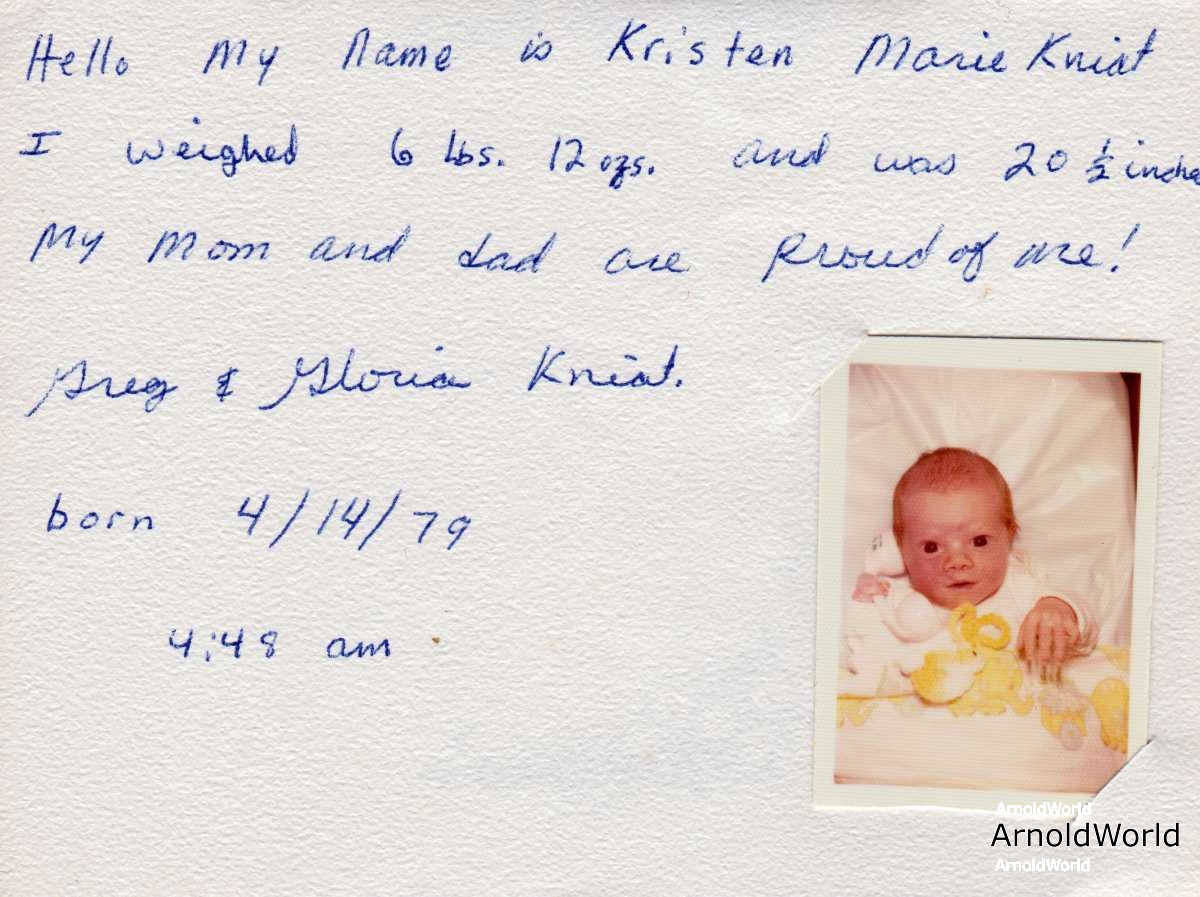 Hello My Name is Kristen Marie Kniat
I weighed 6 lbs. 12 ozs. and was 20 ½ inches
My Mom and dad are Proud of me!
Greg & Gloria Kniat.
born 4/14/79
4:48 am
ArnoldWorld
ArnoldWorld
ArnoldWorld